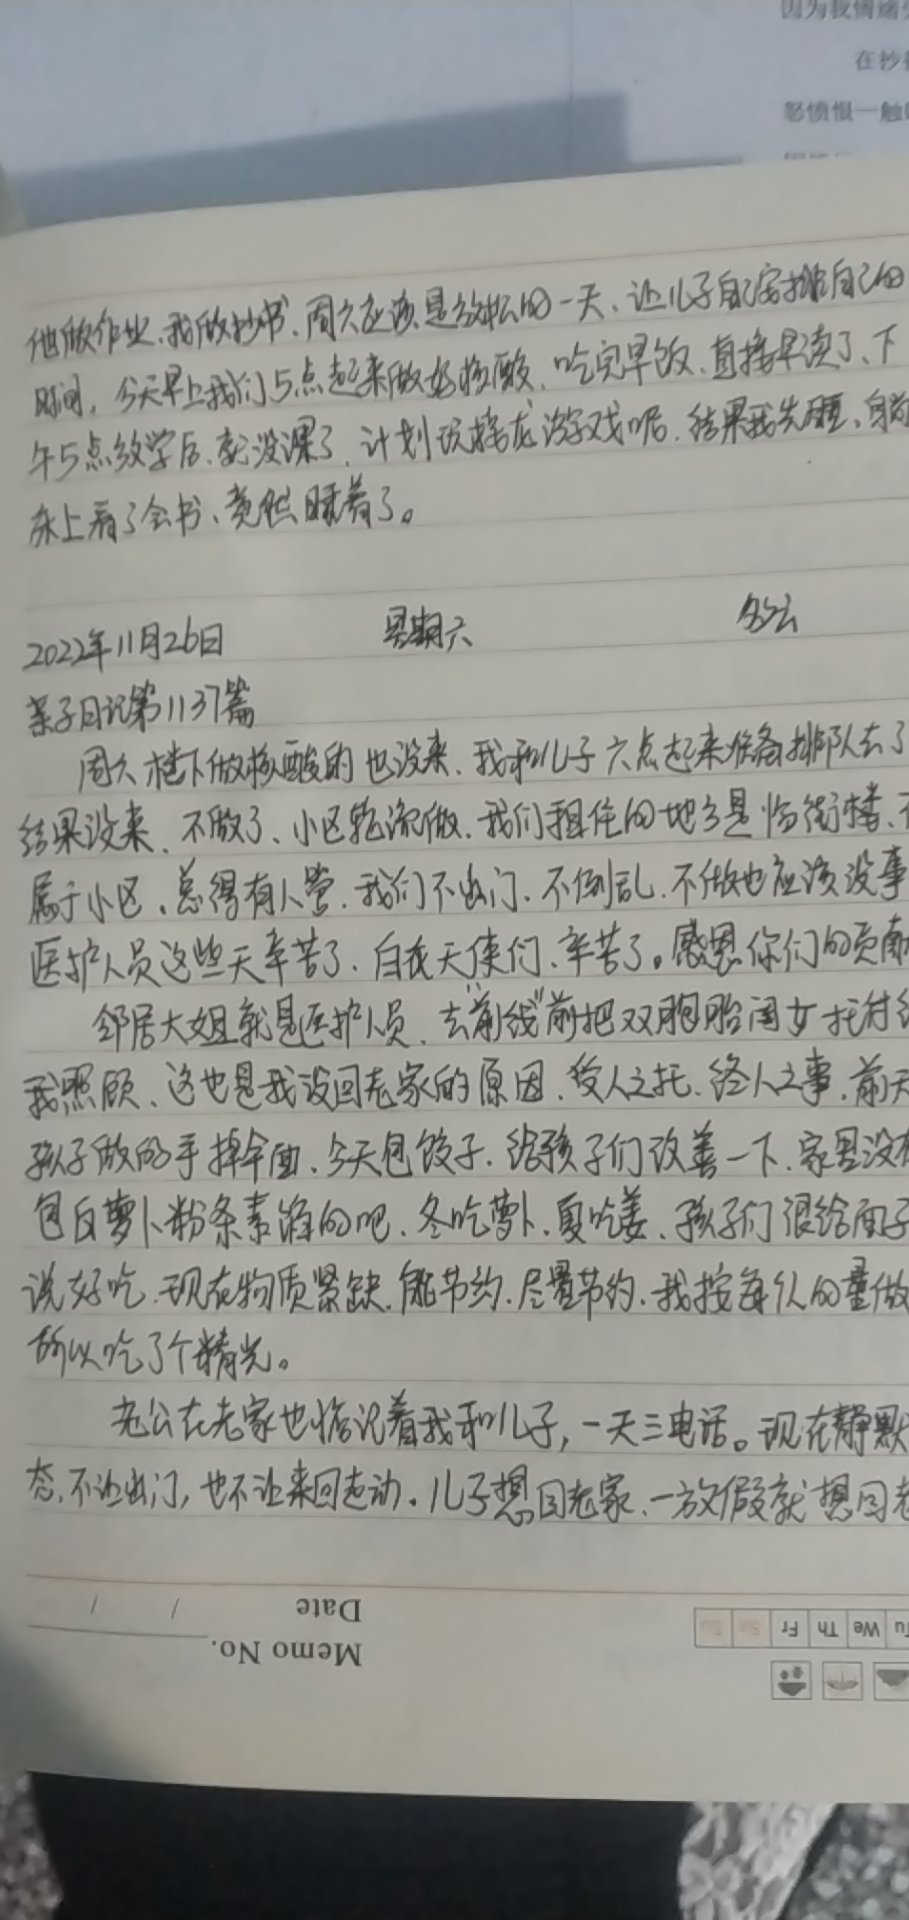 因为我情绪
在抄
怒愤恨一触
他做作业、我做抄书、周六应该是放松的一天、让儿子自己安排自己的
时间，今天早上我们5点起来做好核酸、吃完早饭、直接早读了、下
午5点放学后、就没课了、计划玩接龙游戏呢、结果我先睡、自
床上看了会书、竟然睡着了。
2022年11月26日 星期六 多云
亲子日记第1137篇
周六楼下做核酸的也没来、我和儿子六点起来准备排队去了
结果没来、不做了、小区轮流做、我们租住的地方是临街楼、不
属于小区、总得有人管、我们不出门、不倒乱、不做也应该没事
医护人员这些天辛苦了、白衣天使们、辛苦了。感恩你们的贡献
邻居大姐就是医护人员、去"前线"前把双胞胎闺女托付给
我照顾、这也是我没回老家的原因、受人之托、终人之事、前天
孩子做的手擀伞面、今天包饺子、给孩子们改善一下、家里没
包白萝卜粉条素馅的吧、冬吃萝卜、夏吃姜、孩子们很给面子
说好吃、现在物质紧缺、能节约、尽量节约、我按每人的量做
所以吃了个精光。
老公在老家也惦记着我和儿子，一天三电话。现在静默
态，不让出门，也不让来回走动。儿子想回老家、一放假就想回老
Date / /
Memo No.
Tu We Th Fr Sa Su